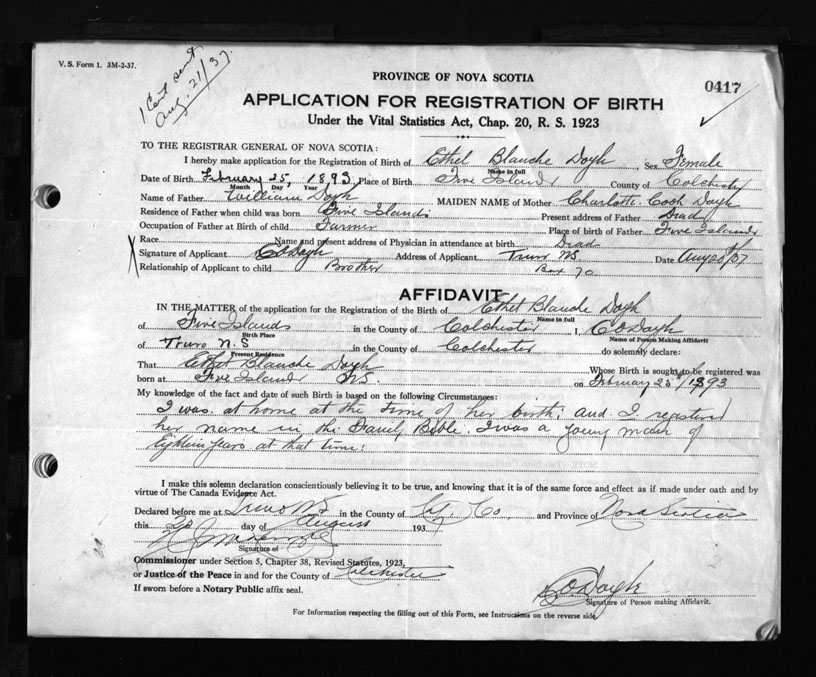 V. S. Form 1. 3M-2-37.
1 Cert sent
Aug. 21/37.
PROVINCE OF NOVA SCOTIA
0417
APPLICATION FOR REGISTRATION OF BIRTH
Under the Vital Statistics Act, Chap. 20, R. S. 1923
TO THE REGISTRAR GENERAL OF NOVA SCOTIA:
I hereby make application for the Registration of Birth of Ethel Blanche Doyle, Sex Female
Name in full
Date of Birth February 25, 1893, Place of Birth Five Islands County of Colchester
Month Day, Year
Name of Father William Doyle MAIDEN NAME of Mother Charlotte Cook Doyle
Residence of Father when child was born Five Islands Present address of Father Dead
Occupation of Father at Birth of child Farmer Place of birth of Father Five Islands
Race Name and present address of Physician in attendance at birth Dead
Signature of Applicant Doyle Address of Applicant Truro NS Date Aug 20/37
Relationship of Applicant to child Brother Box 70
AFFIDAVIT
IN THE MATTER of the application for the Registration of the Birth of Ethel Blanche Doyle
Name in full
of Five Islands in the County of Colchester I, C O Doyle
Birth Place Name of Person Making Affidavit
of Truro N.S in the County of Colchester do solemnly declare:
Present Residence
That Ethel Blanche Doyle Whose Birth is sought to be registered was
born at Five Islands NS. on February 25 1893
My knowledge of the fact and date of such Birth is based on the following Circumstances:
I was at home at the time of her birth: and I registered
her name in the Family Bible. I was a young man of
Eighteen years at that time.
I make this solemn declaration conscientiously believing it to be true, and knowing that it is of the same force and effect as if made under oath and by
virtue of The Canada Evidence Act.
Declared before me at Truro NS in the County of Col. Co and Province of Nova Scotia
this day of August 193
Signature of
Commissioner under Section 5, Chapter 38, Revised Statutes, 1923,
or Justice of the Peace in and for the County of Colchester
If sworn before a Notary Public affix seal.
C O Doyle
Signature of Person making Affidavit.
For Information respecting the filling out of this Form, see Instructions on the reverse side.